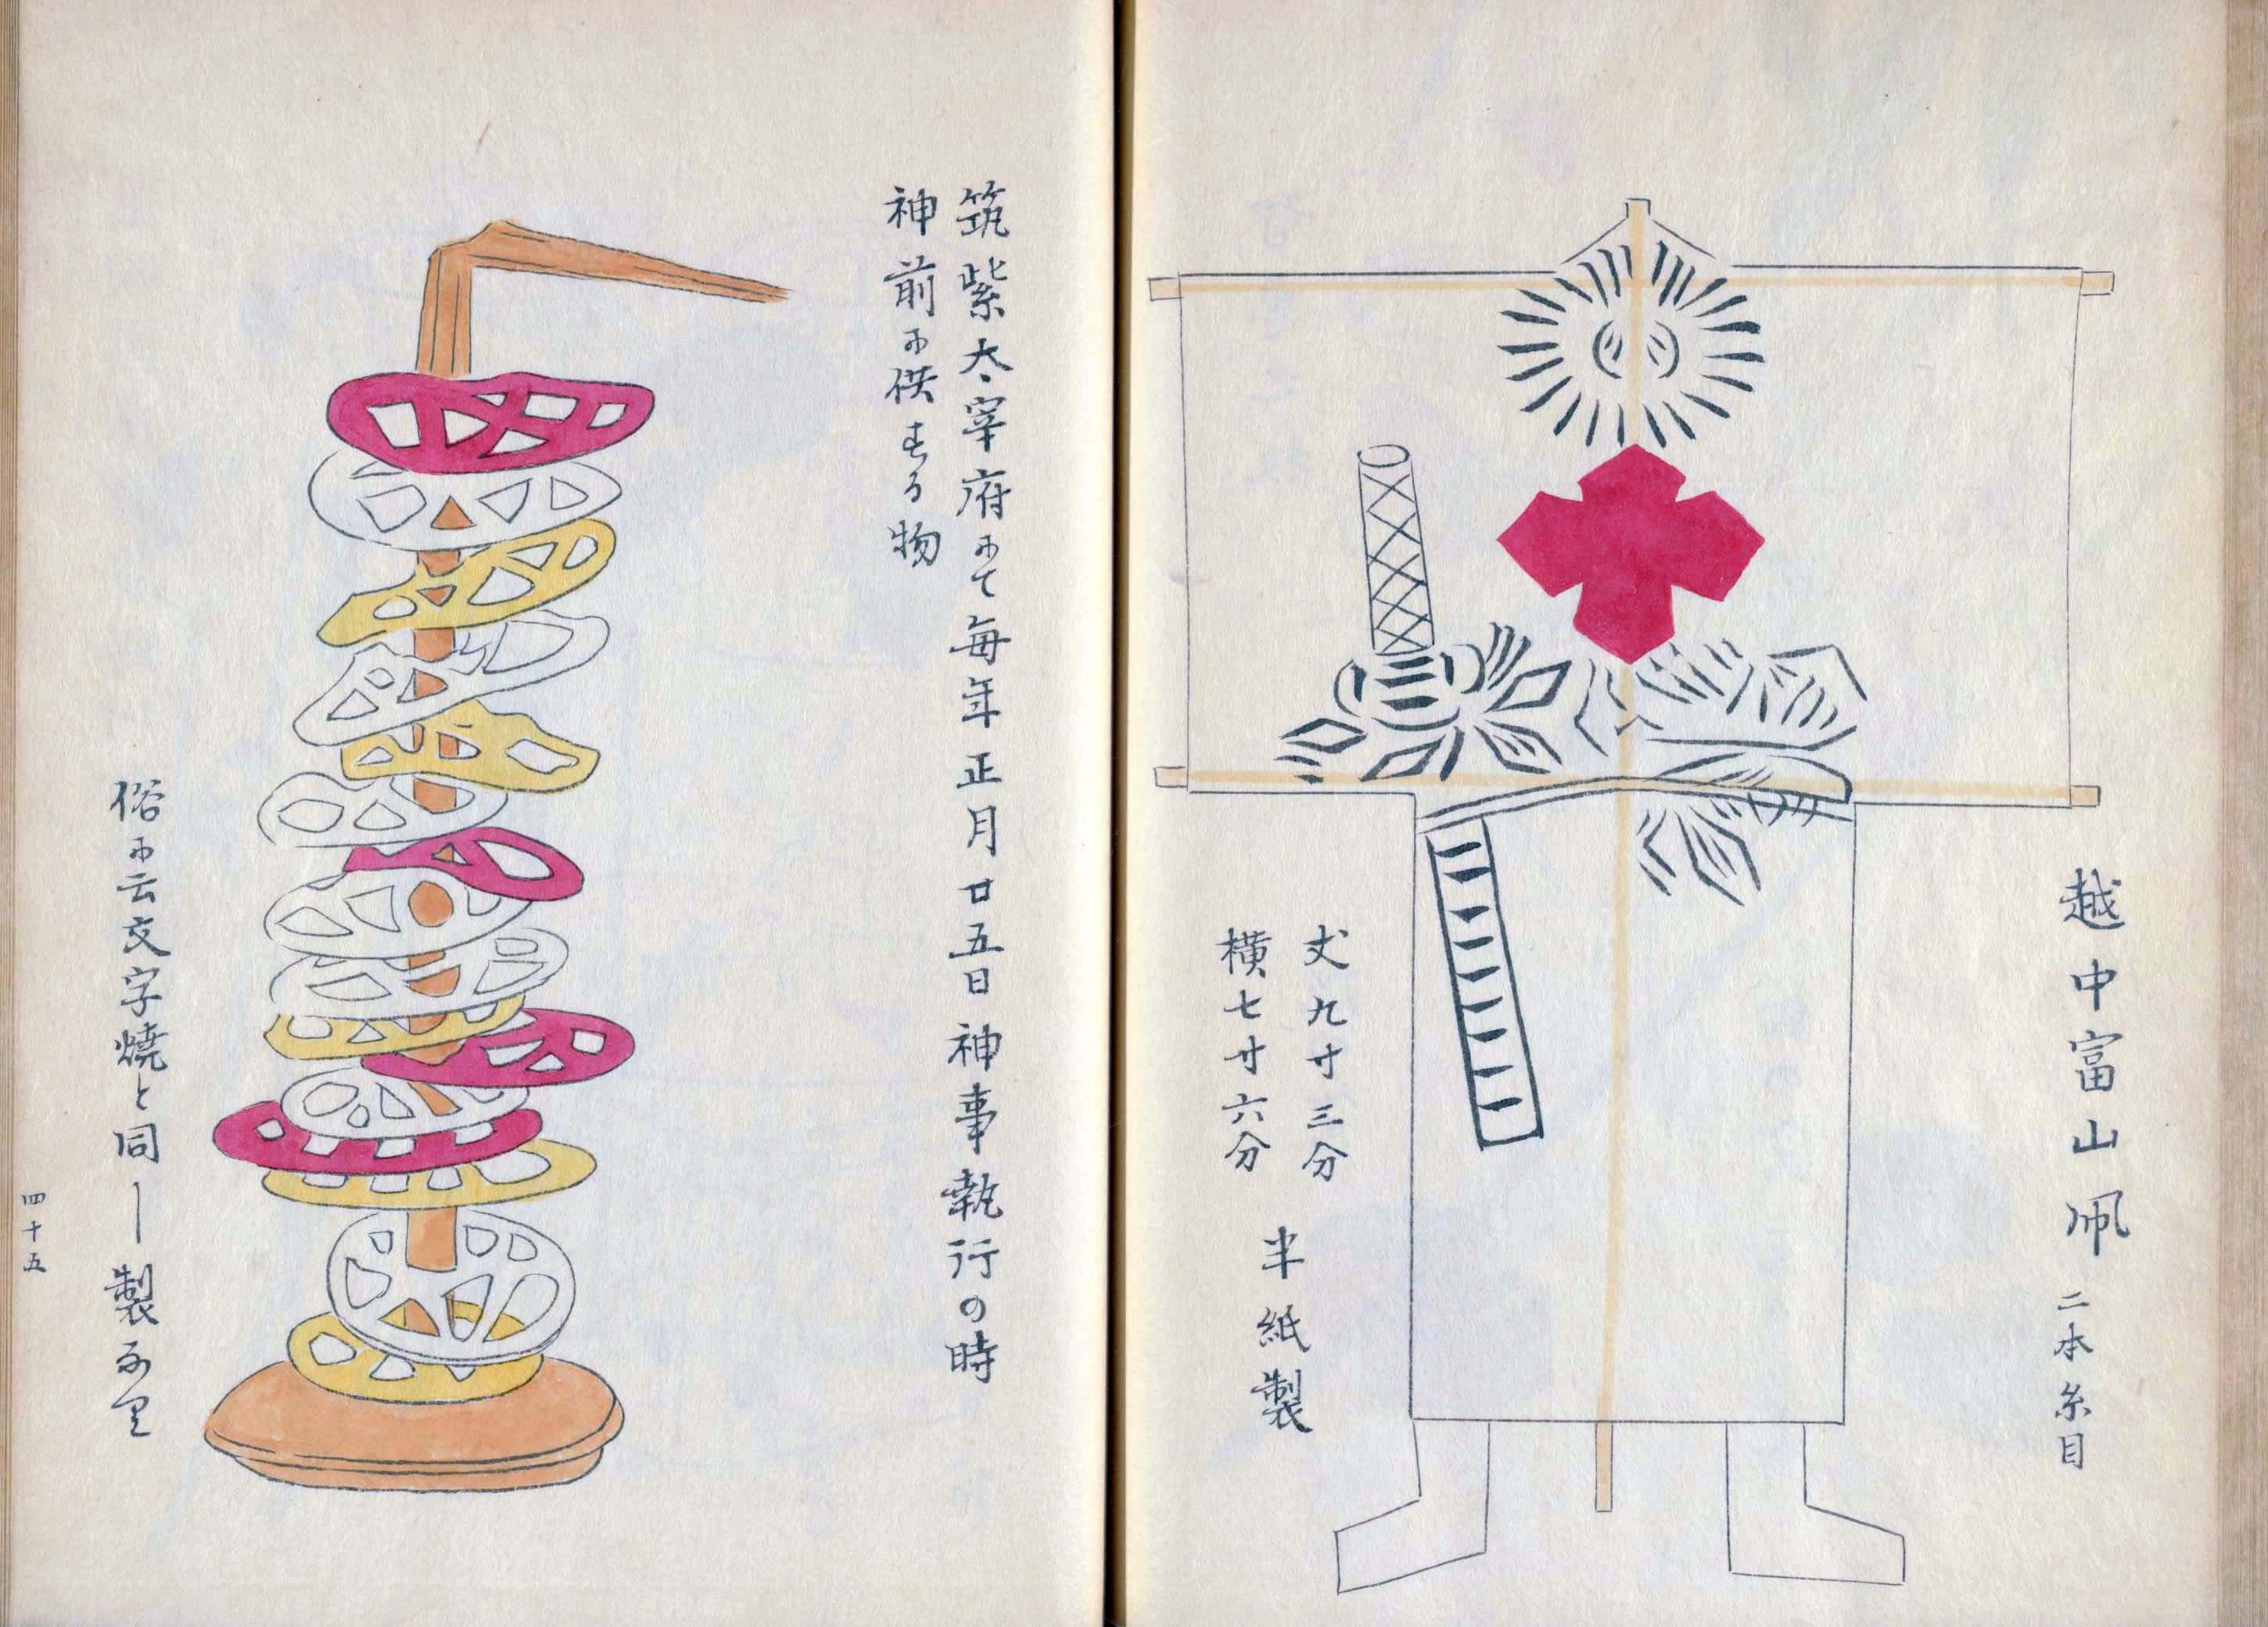 越中富山凧 二本糸目
丈九寸三分
横七寸六分
半紙製
筑紫太宰府にて毎年正月廿五日神事執行の時
神前に供する物
俗に云文字焼と同し製なり
四十五